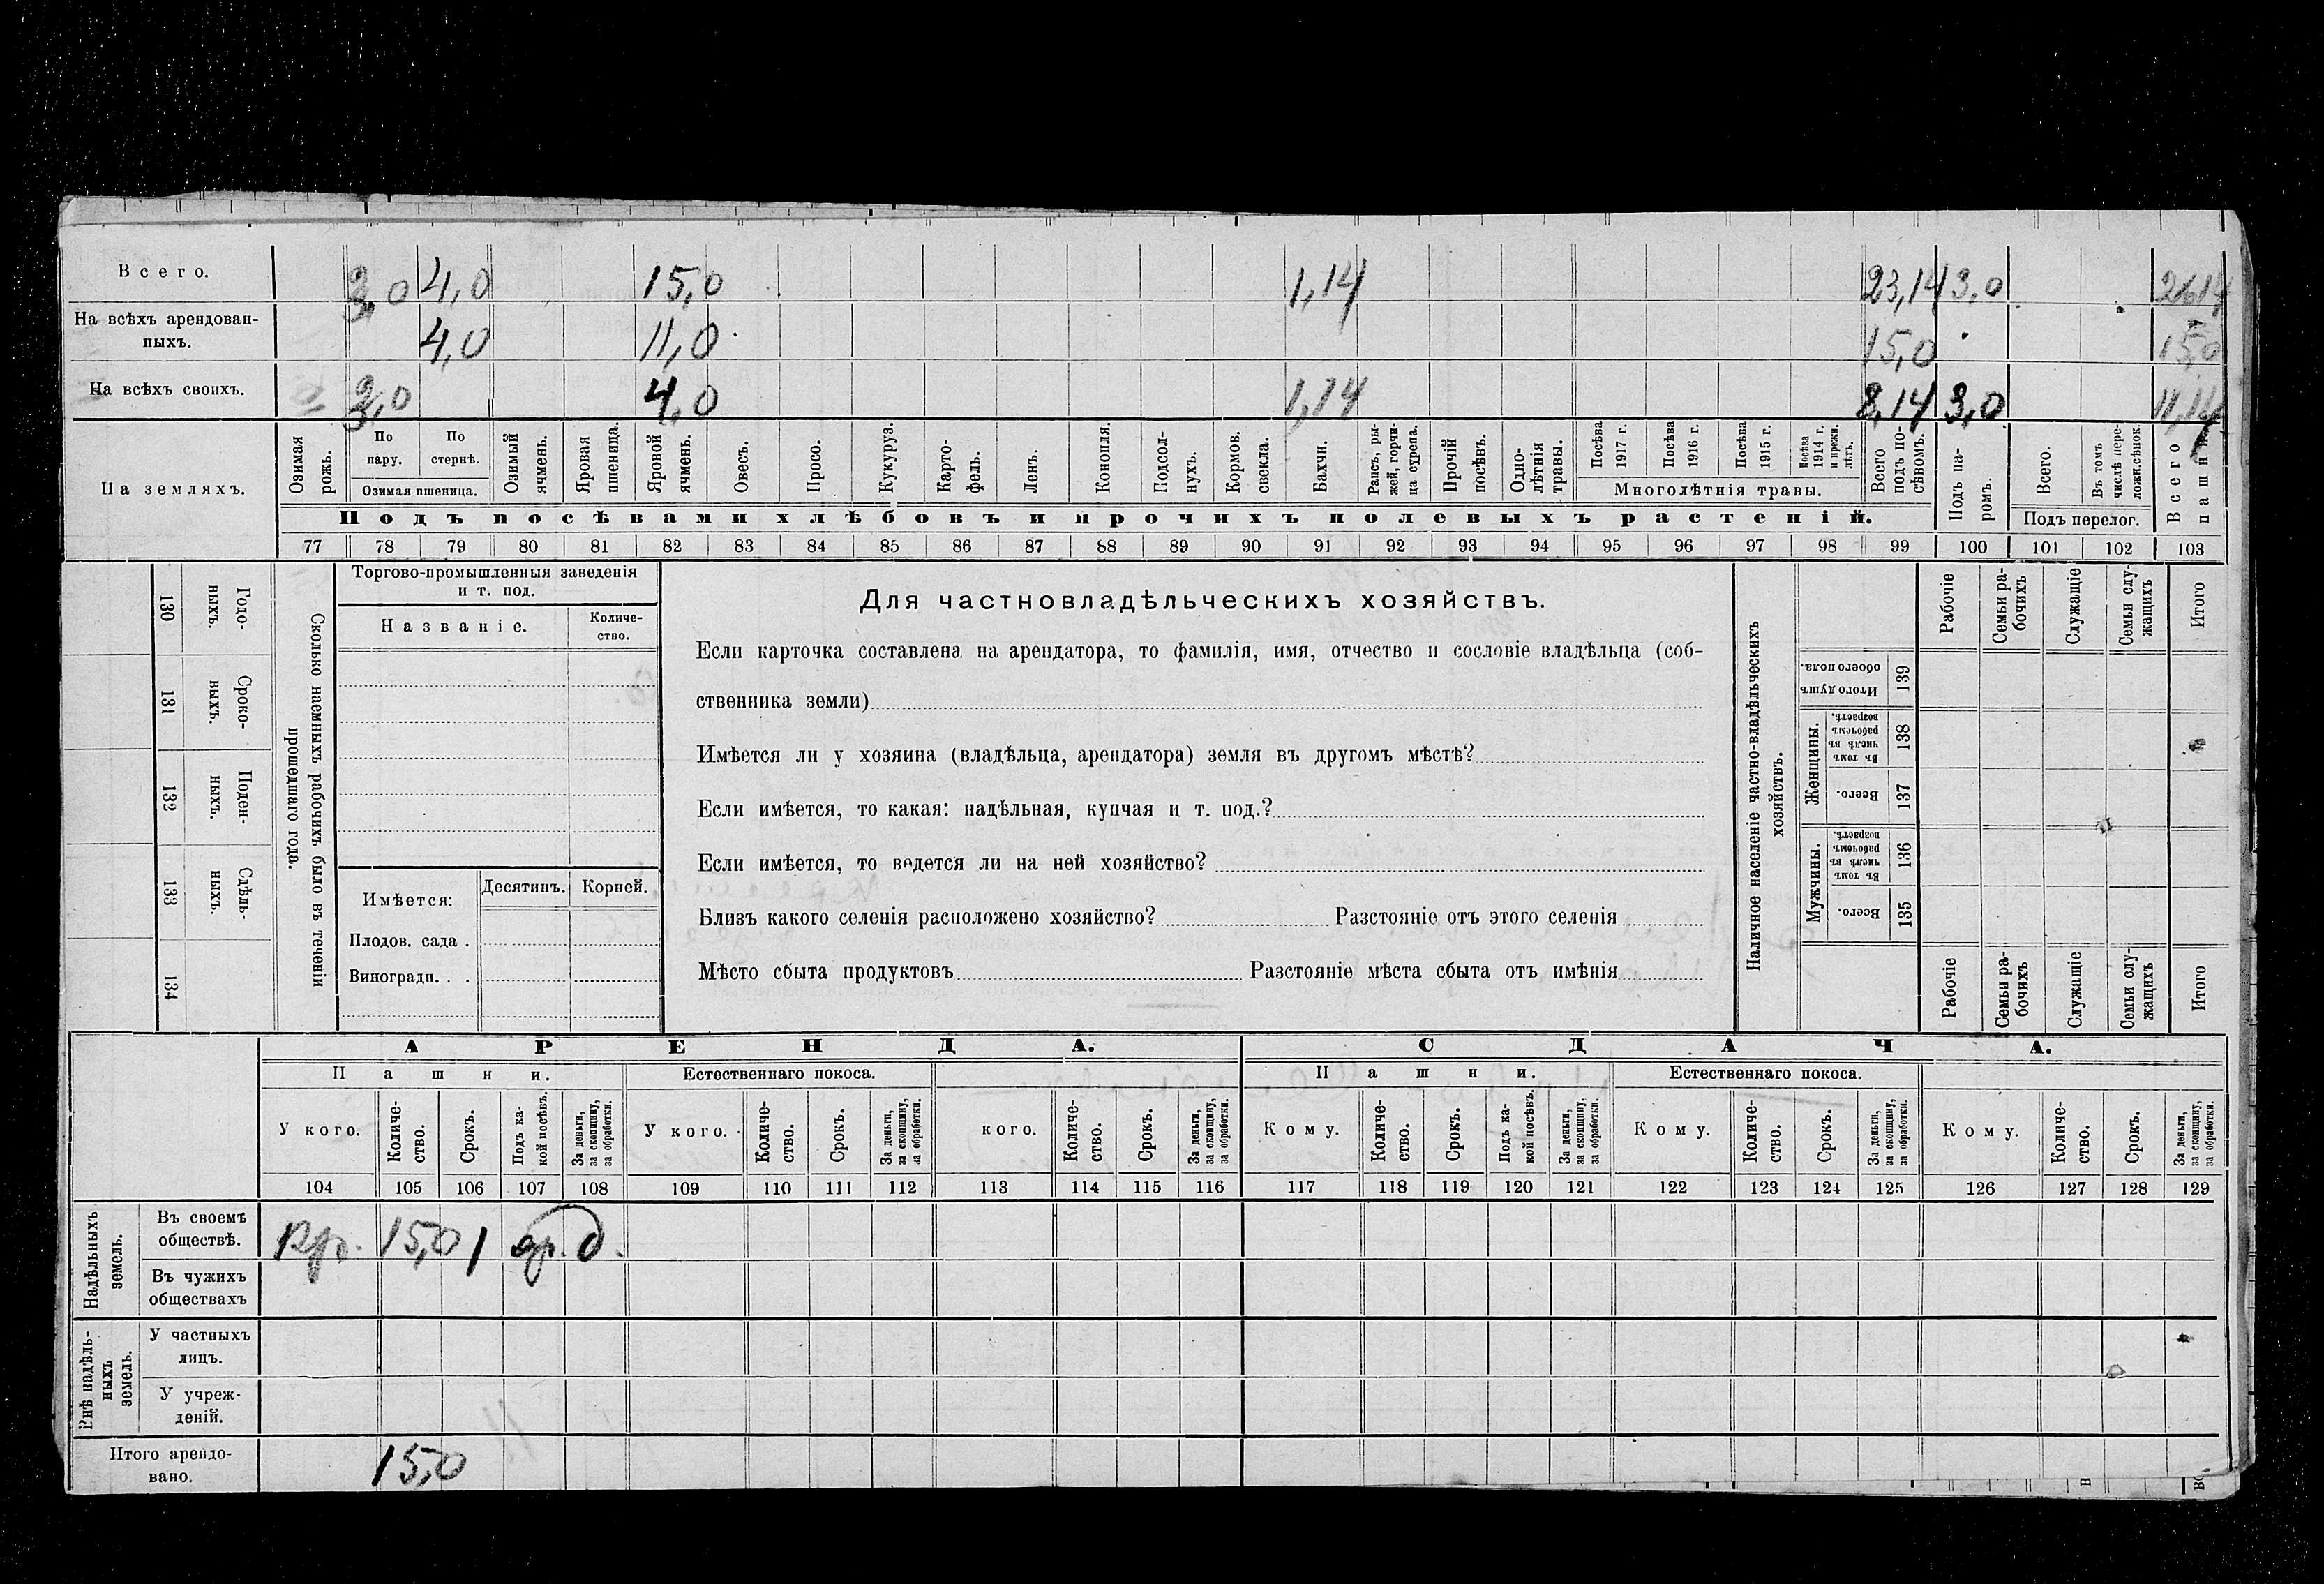 Всего. 3,0 4,0 15,0 1,14 23,14 3,0 26,14
На всѣхъ арендован-
ныхъ. 4,0 11,0 15,0 15,0
На всѣхъ своихъ. 3,0 4,0 1,14 8,14 3,0 11,14
На земляхъ.
Озимая рожь.
По пару.
По стернѣ.
Озимая пшеница.
Озимый ячмень.
Яровая пшеница.
Яровой ячмень.
Овесъ.
Просо.
Кукуруз.
Карто-
фель.
Ленъ.
Конопля.
Подсол-
нухъ.
Кормов. свекла.
Бахчи.
Рапсъ, ры-
жей, горчи-
ца сурепа.
Прочій посѣвъ.
Одно-
лѣтнія травы.
Посѣва 1917 г.
Посѣва 1916 г.
Посѣва 1915 г.
Посѣва 1914 г. и прежн. лѣтъ.
Многолѣтнія травы.
Всего подъ по-
сѣвомъ.
Подъ па-
ромъ.
Всего.
Въ томъ числѣ пере-
ложн.сѣнок.
Подъ перелог.
Всего пашни.
Подъ посѣвами хлѣбовъ и прочихъ полевыхъ растеній.
77 78 79 80 81 82 83 84 85 86 87 88 89 90 91 92 93 94 95 96 97 98 99 100 101 102 103
130 Годо-
выхъ.
131 Сроко-
выхъ.
132 Поден-
ныхъ.
133 Сдѣль-
ныхъ.
134
Сколько наемныхъ рабочихъ было въ теченіи
прошедшаго года.
Торгово-промышленныя заведенія
и т. под.
Названіе.
Количе-
ство.
Имѣется:
Десятинъ. Корней.
Плодов. сада .
Виноградн. . .
Для частновладѣльческихъ хозяйствъ.
Если карточка составлена на арендатора, то фамилія, имя, отчество и сословіе владѣльца (соб-
ственника земли)
Имѣется ли у хозяина (владѣльца, арендатора) земля въ другомъ мѣстѣ?
Если имѣется, то какая: надѣльная, купчая и т. под.?
Если имѣется, то ведется ли на ней хозяйство?
Близъ какого селенія расположено хозяйство? Разстояніе отъ этого селенія
Мѣсто сбыта продуктовъ Разстояніе мѣста сбыта отъ имѣнія
Наличное населеніе частно-владѣльческихъ
хозяйствъ.
Рабочіе
Семьи ра-
бочихъ
Служащіе
Семьи слу-
жащихъ
Итого
Итого душъ обоего пола. 139
Женщины.
Въ томъ числѣ въ рабочемъ возрастѣ. 138
Всего. 137
Мужчины.
Въ томъ числѣ въ рабочемъ возрастѣ. 136
Всего. 135
Рабочіе
Семьи ра-
бочихъ
Служащіе
Семьи слу-
жащихъ
Итого
АРЕНДА. СДАЧА.
Пашни. Естественнаго покоса. Пашни. Естественнаго покоса.
У кого.
Количе-
ство.
Срокъ.
Подъ ка-
кой посѣвъ.
За деньги,
за скопщину,
за обработки.
У кого.
Количе-
ство.
Срокъ.
За деньги,
за скопщину,
за обработки.
кого.
Количе-
ство.
Срокъ.
За деньги,
за скопщину,
за обработки.
Кому.
Количе-
ство.
Срокъ.
Подъ ка-
кой посѣвъ.
За деньги,
за скопщину,
за обработки.
Кому.
Количе-
ство.
Срокъ.
За деньги,
за скопщину,
за обработки.
Кому.
Количе-
ство.
Срокъ.
За деньги,
за скопщину,
за обработки.
104 105 106 107 108 109 110 111 112 113 114 115 116 117 118 119 120 121 122 123 124 125 126 127 128 129
Надѣльныхъ
земель.
Въ своемъ
обществѣ. 15,0 1 д.
Въ чужихъ
обществахъ
Внѣ надѣль-
ныхъ
земель.
У частныхъ
лицъ.
У учреж-
деній.
Итого арендо-
вано. 15,0